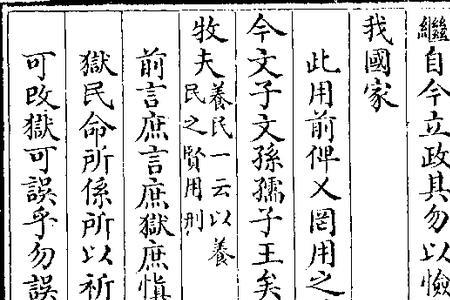 繼自今立政其勿以憸
我國家
此用前俾乂罔用之
今文子文孫孺子王矣
牧夫養民一云以養
民之賢用刑
前言庶言庶獄庶慎
獄民命所係所以祈
可改獄可誤乎勿誤